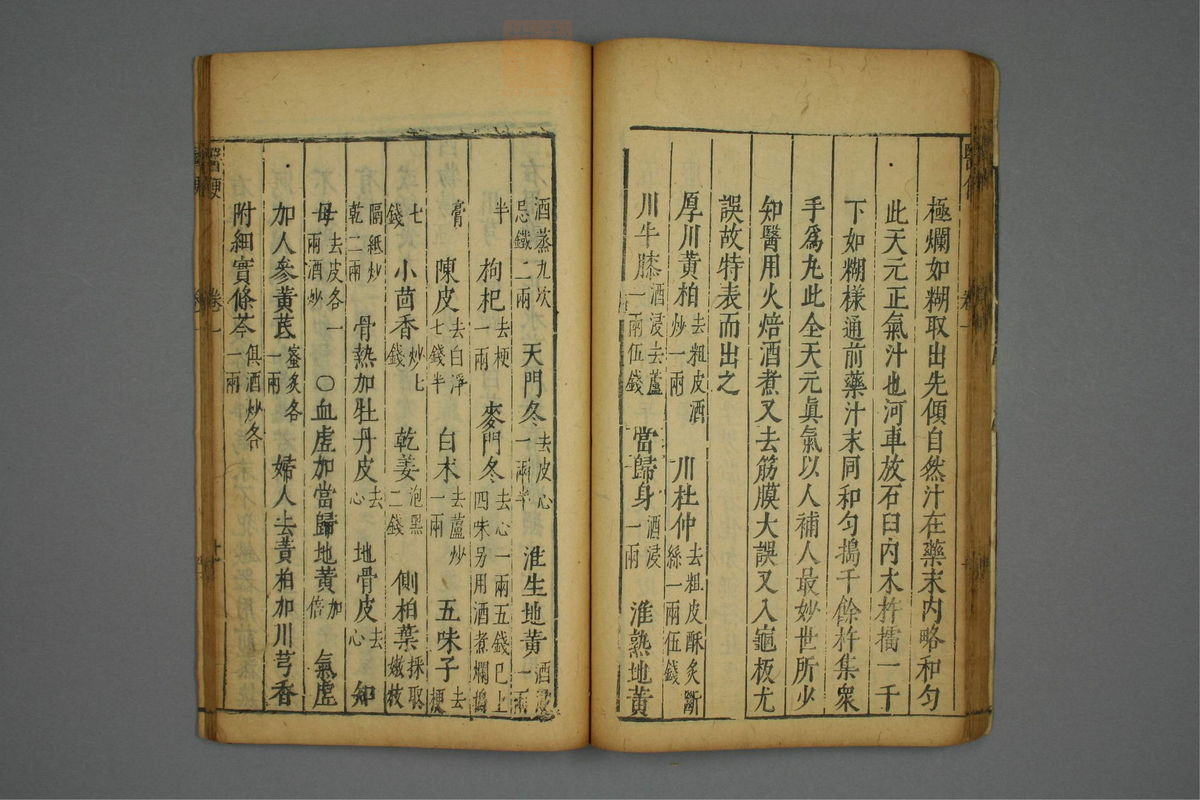 極爛如糊取出先傾自然汁在藥末内略和勻
此天元正氣汁也河車放石臼内木杵擂一千
下如糊樣通前藥汁末同和勻搗千餘杵集衆
手爲丸此全天元眞氣以人補人最妙世所少
知醫用火焙酒煮又去筋膜大誤又入龜板尤
誤故特表而出之
厚川黃柏去粗皮酒炒一兩 川杜仲去粗皮酥炙斷絲一兩伍錢
川牛膝酒浸去蘆一兩伍錢 當歸身酒浸一兩 淮熟地黃
酒蒸九次忌鐵二兩 天門冬去皮心一兩半 淮生地黃酒浸一兩
半 枸杞去梗一兩 麥門冬去心一兩五錢已上四味另用酒煮爛搗
膏 陳皮去白淨七錢半 白朮去蘆炒一兩 五味子去梗
七錢 小茴香炒七錢 乾姜泡黑二錢 側柏葉採取嫩枝
隔紙炒乾二兩 骨熱加牡丹皮去心 地骨皮去心 知
母去皮各一兩酒炒 〇血虛加當歸地黃加倍 氣虛
加人參黃芪蜜炙各一兩 婦人去黃柏加川芎香
附細實條芩俱酒炒各一兩
卷一